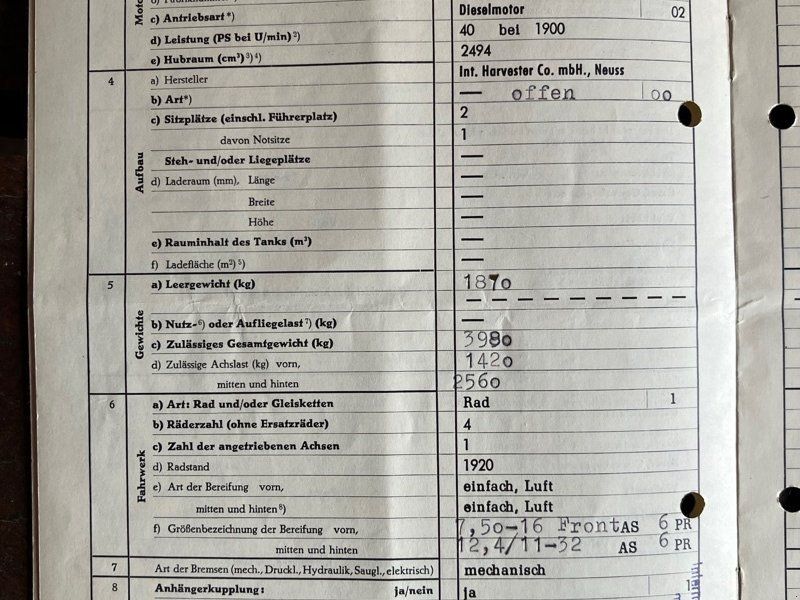 c) Antriebsart*) Dieselmotor 02
d) Leistung (PS bei U/min)²) 40 bei 1900
e) Hubraum (cm³)³)⁴) 2494
4 a) Hersteller Int. Harvester Co. mbH., Neuss
b) Art*) — offen 00
c) Sitzplätze (einschl. Führerplatz) 2
davon Notsitze 1
Aufbau
Steh- und/oder Liegeplätze —
d) Laderaum (mm), Länge —
Breite —
Höhe —
e) Rauminhalt des Tanks (m³) —
f) Ladefläche (m²)⁵) —
5 a) Leergewicht (kg) 1870
Gewichte
b) Nutz-⁶) oder Aufliegelast⁷) (kg) —
c) Zulässiges Gesamtgewicht (kg) 3980
d) Zulässige Achslast (kg) vorn, 1420
mitten und hinten 2560
6 a) Art: Rad und/oder Gleisketten Rad 1
b) Räderzahl (ohne Ersatzräder) 4
c) Zahl der angetriebenen Achsen 1
Fahrwerk
d) Radstand 1920
e) Art der Bereifung vorn, einfach, Luft
mitten und hinten⁸) einfach, Luft
f) Größenbezeichnung der Bereifung vorn, 7,50-16 Front AS 6 PR
mitten und hinten 12,4/11-32 AS 6 PR
7 Art der Bremsen (mech., Druckl., Hydraulik, Saugl., elektrisch) mechanisch
8 Anhängerkupplung: ja/nein ja 1